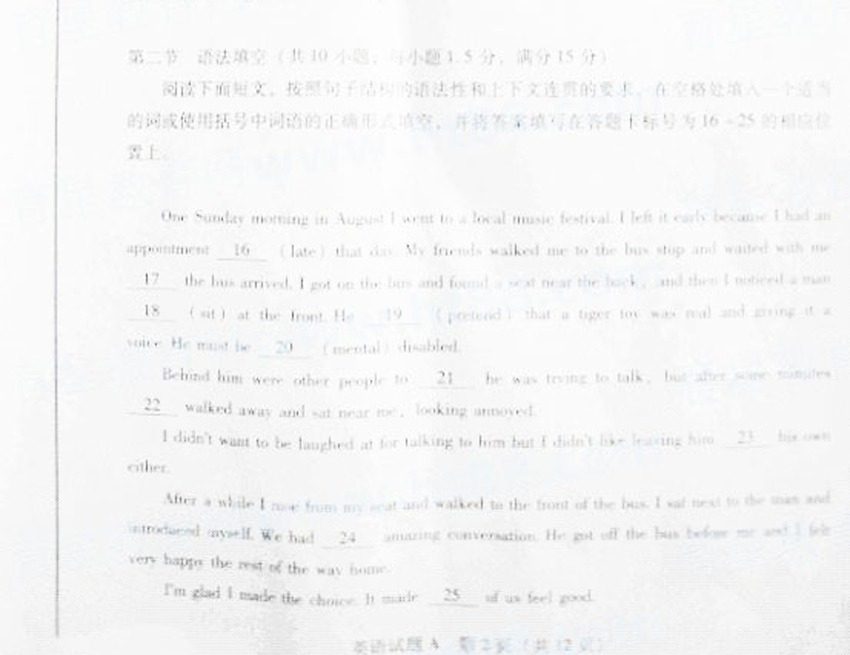 第二节 语法填空（共10小题；每小题1.5分，满分15分）
阅读下面短文，按照句子结构的语法性和上下文连贯的要求，在空格处填入一个适当
的词或使用括号中词语的正确形式填空，并将答案填写在答题卡标号为16-25的相应位
置上。
One Sunday morning in August I went to a local music festival. I left it early because I had an
appointment 16 (late) that day. My friends walked me to the bus stop and waited with me
17 the bus arrived. I got on the bus and found a seat near the back, and then I noticed a man
18 (sit) at the front. He 19 (pretend) that a tiger toy was real and giving it a
voice. He must be 20 (mental) disabled.
Behind him were other people to 21 he was trying to talk, but after some minutes
22 walked away and sat near me, looking annoyed.
I didn't want to be laughed at for talking to him but I didn't like leaving him 23 his own
either.
After a while I rose from my seat and walked to the front of the bus. I sat next to the man and
introduced myself. We had 24 amazing conversation. He got off the bus before me and I felt
very happy the rest of the way home.
I'm glad I made the choice. It made 25 of us feel good.
英语试题A 第2页（共12页）